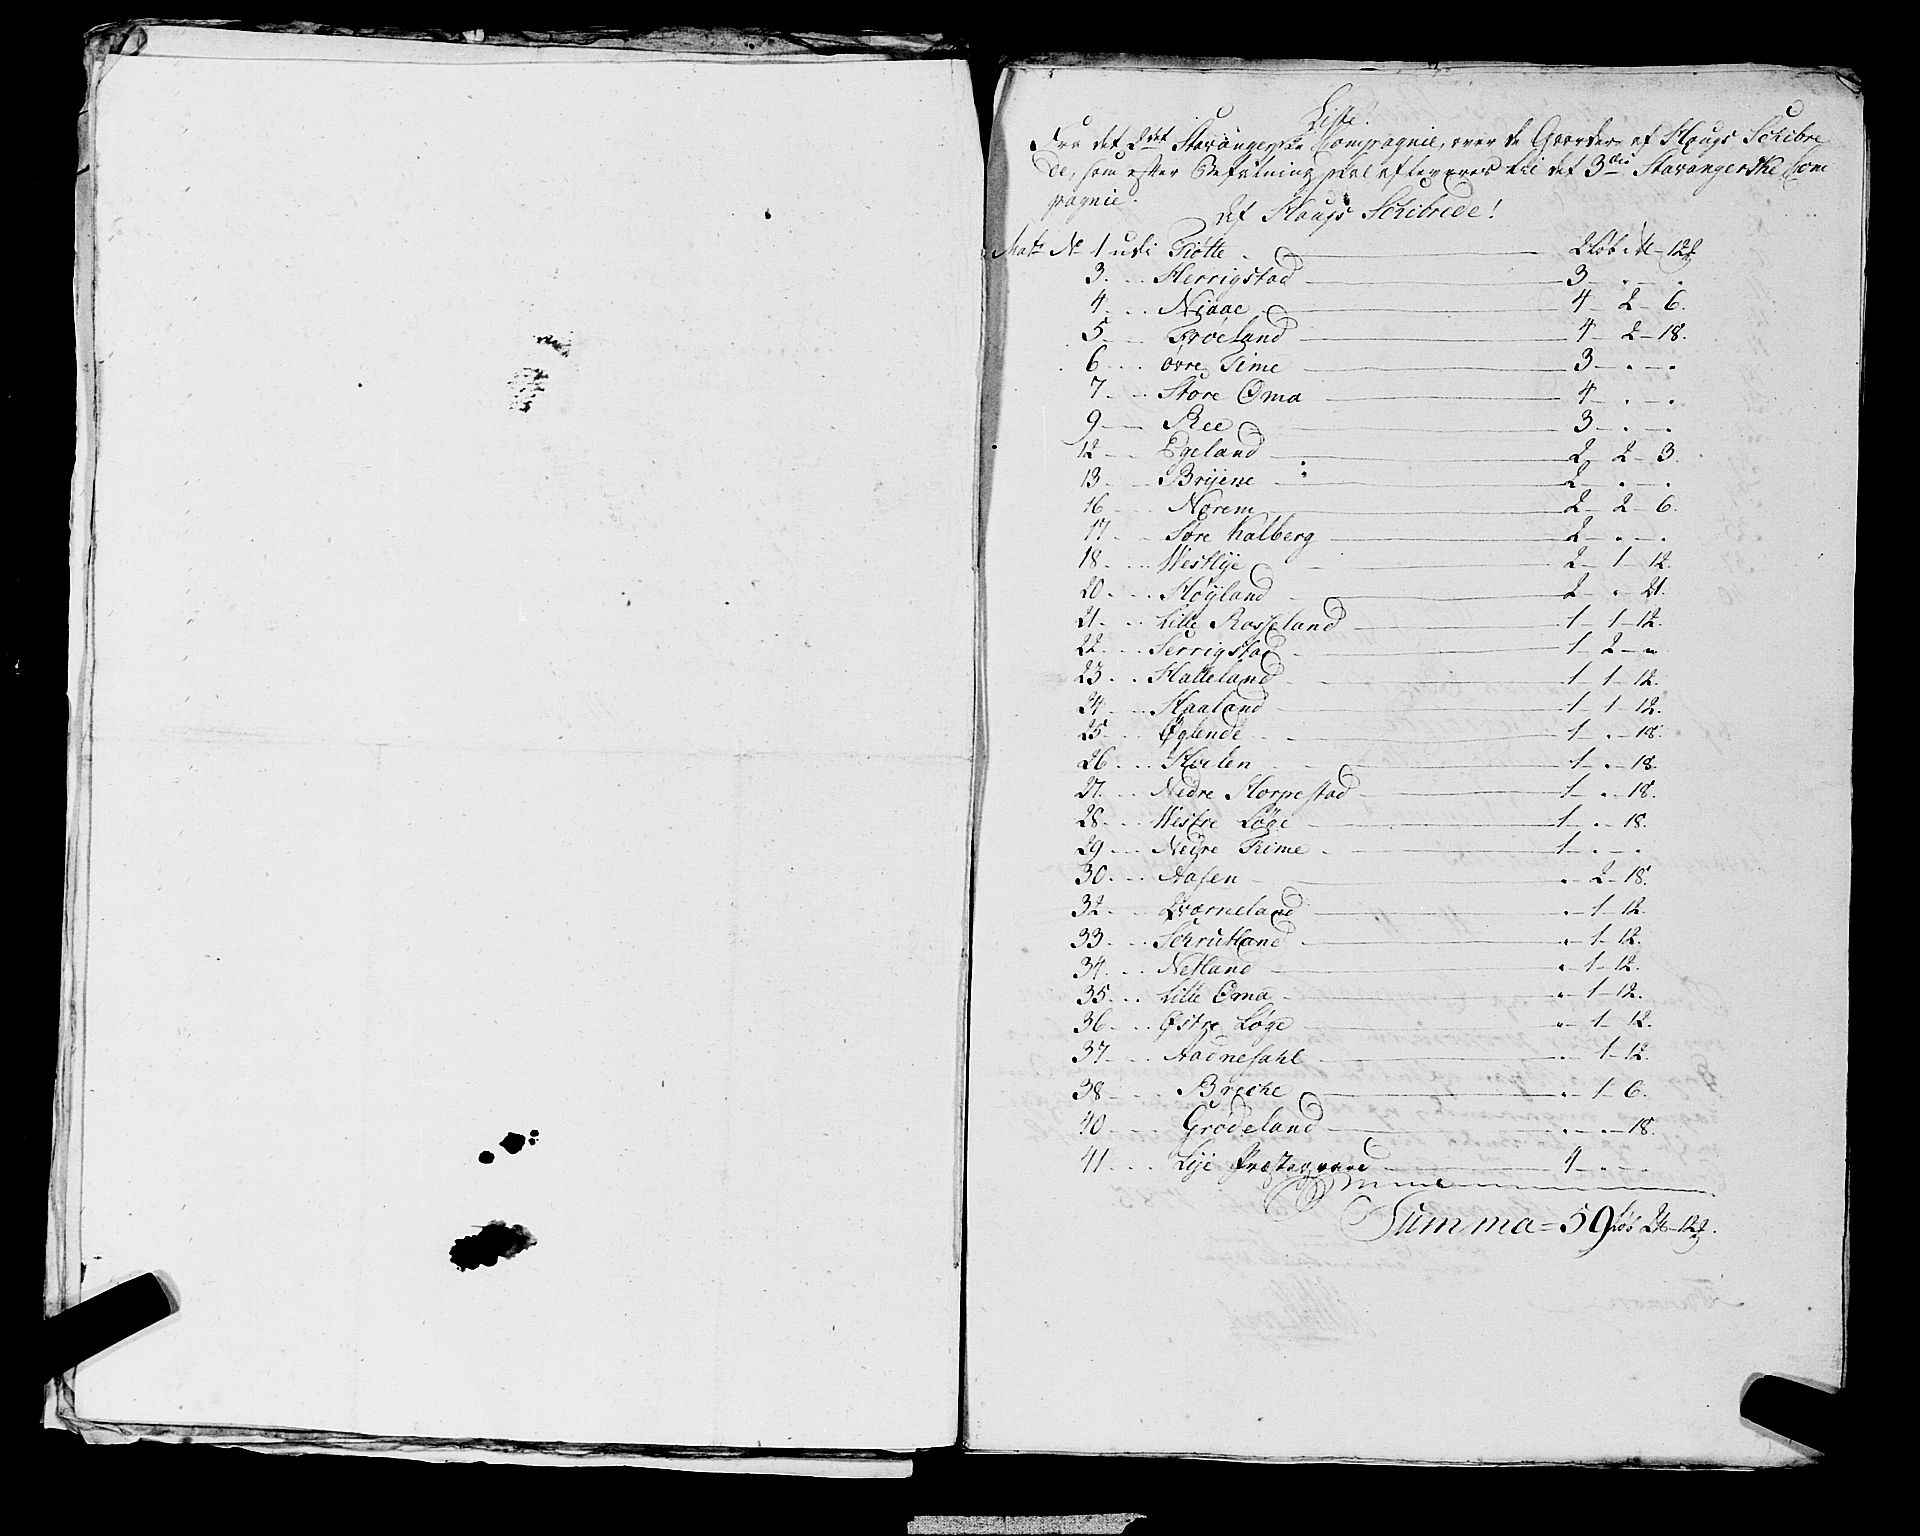 Liste.
Fra det 2det Stavangerske Compagnie, over de Gaarder af Haugs Schibre
de, som efter Befalning skal afleveres til det 3die Stavangerske Com
pagnie.
Af Haugs Schibrede!
Matr No 1 udi Tiøtte 2 Løb 1 - 12
3. Herrigstad 3 - . - .
4. Niaae 4 - 2 - 6.
5. Frøeland 4 - 2 - 18.
6. øvre Time 3 - . - .
7. Store Oma 4 - . - .
9. Ree 3 - . - .
12. Egeland 2 - 2 - 3.
13. Bryene 2 - . - .
16. Norem 2 - 2 - 6.
17. Søre Kalberg 2 - . - .
18. Westlye 2 - 1 - 12.
20. Høyland 2 - . - 21.
21. Lille Rosseland 1 - 1 - 12.
22. Serrigstad 1 - 2 - .
23. Hatteland 1 - 1 - 12.
24. Haaland 1 - 1 - 12.
25. Øglende 1 - . - 18.
26. Hælen 1 - . - 18.
27. Nedre Horpestad 1 - . - 18.
28. Westre Løge 1 - . - 18.
29. Nedre Time 1 - . - .
30. Aasen . - 2 - 18.
32. Qværneland . - 1 - 12.
33. Schrutland . - 1 - 12.
34. Netland . - 1 - 12.
35. Lille Oma . - 1 - 12.
36. Østre Løge . - 1 - 12.
37. Aadnesahl . - 1 - 12.
38. Breche . - 1 - 6.
40. Grødeland . - . - 18.
41. Lye Præstegaard 4 - . - .
Summa = 59 Løb 2 - 12.